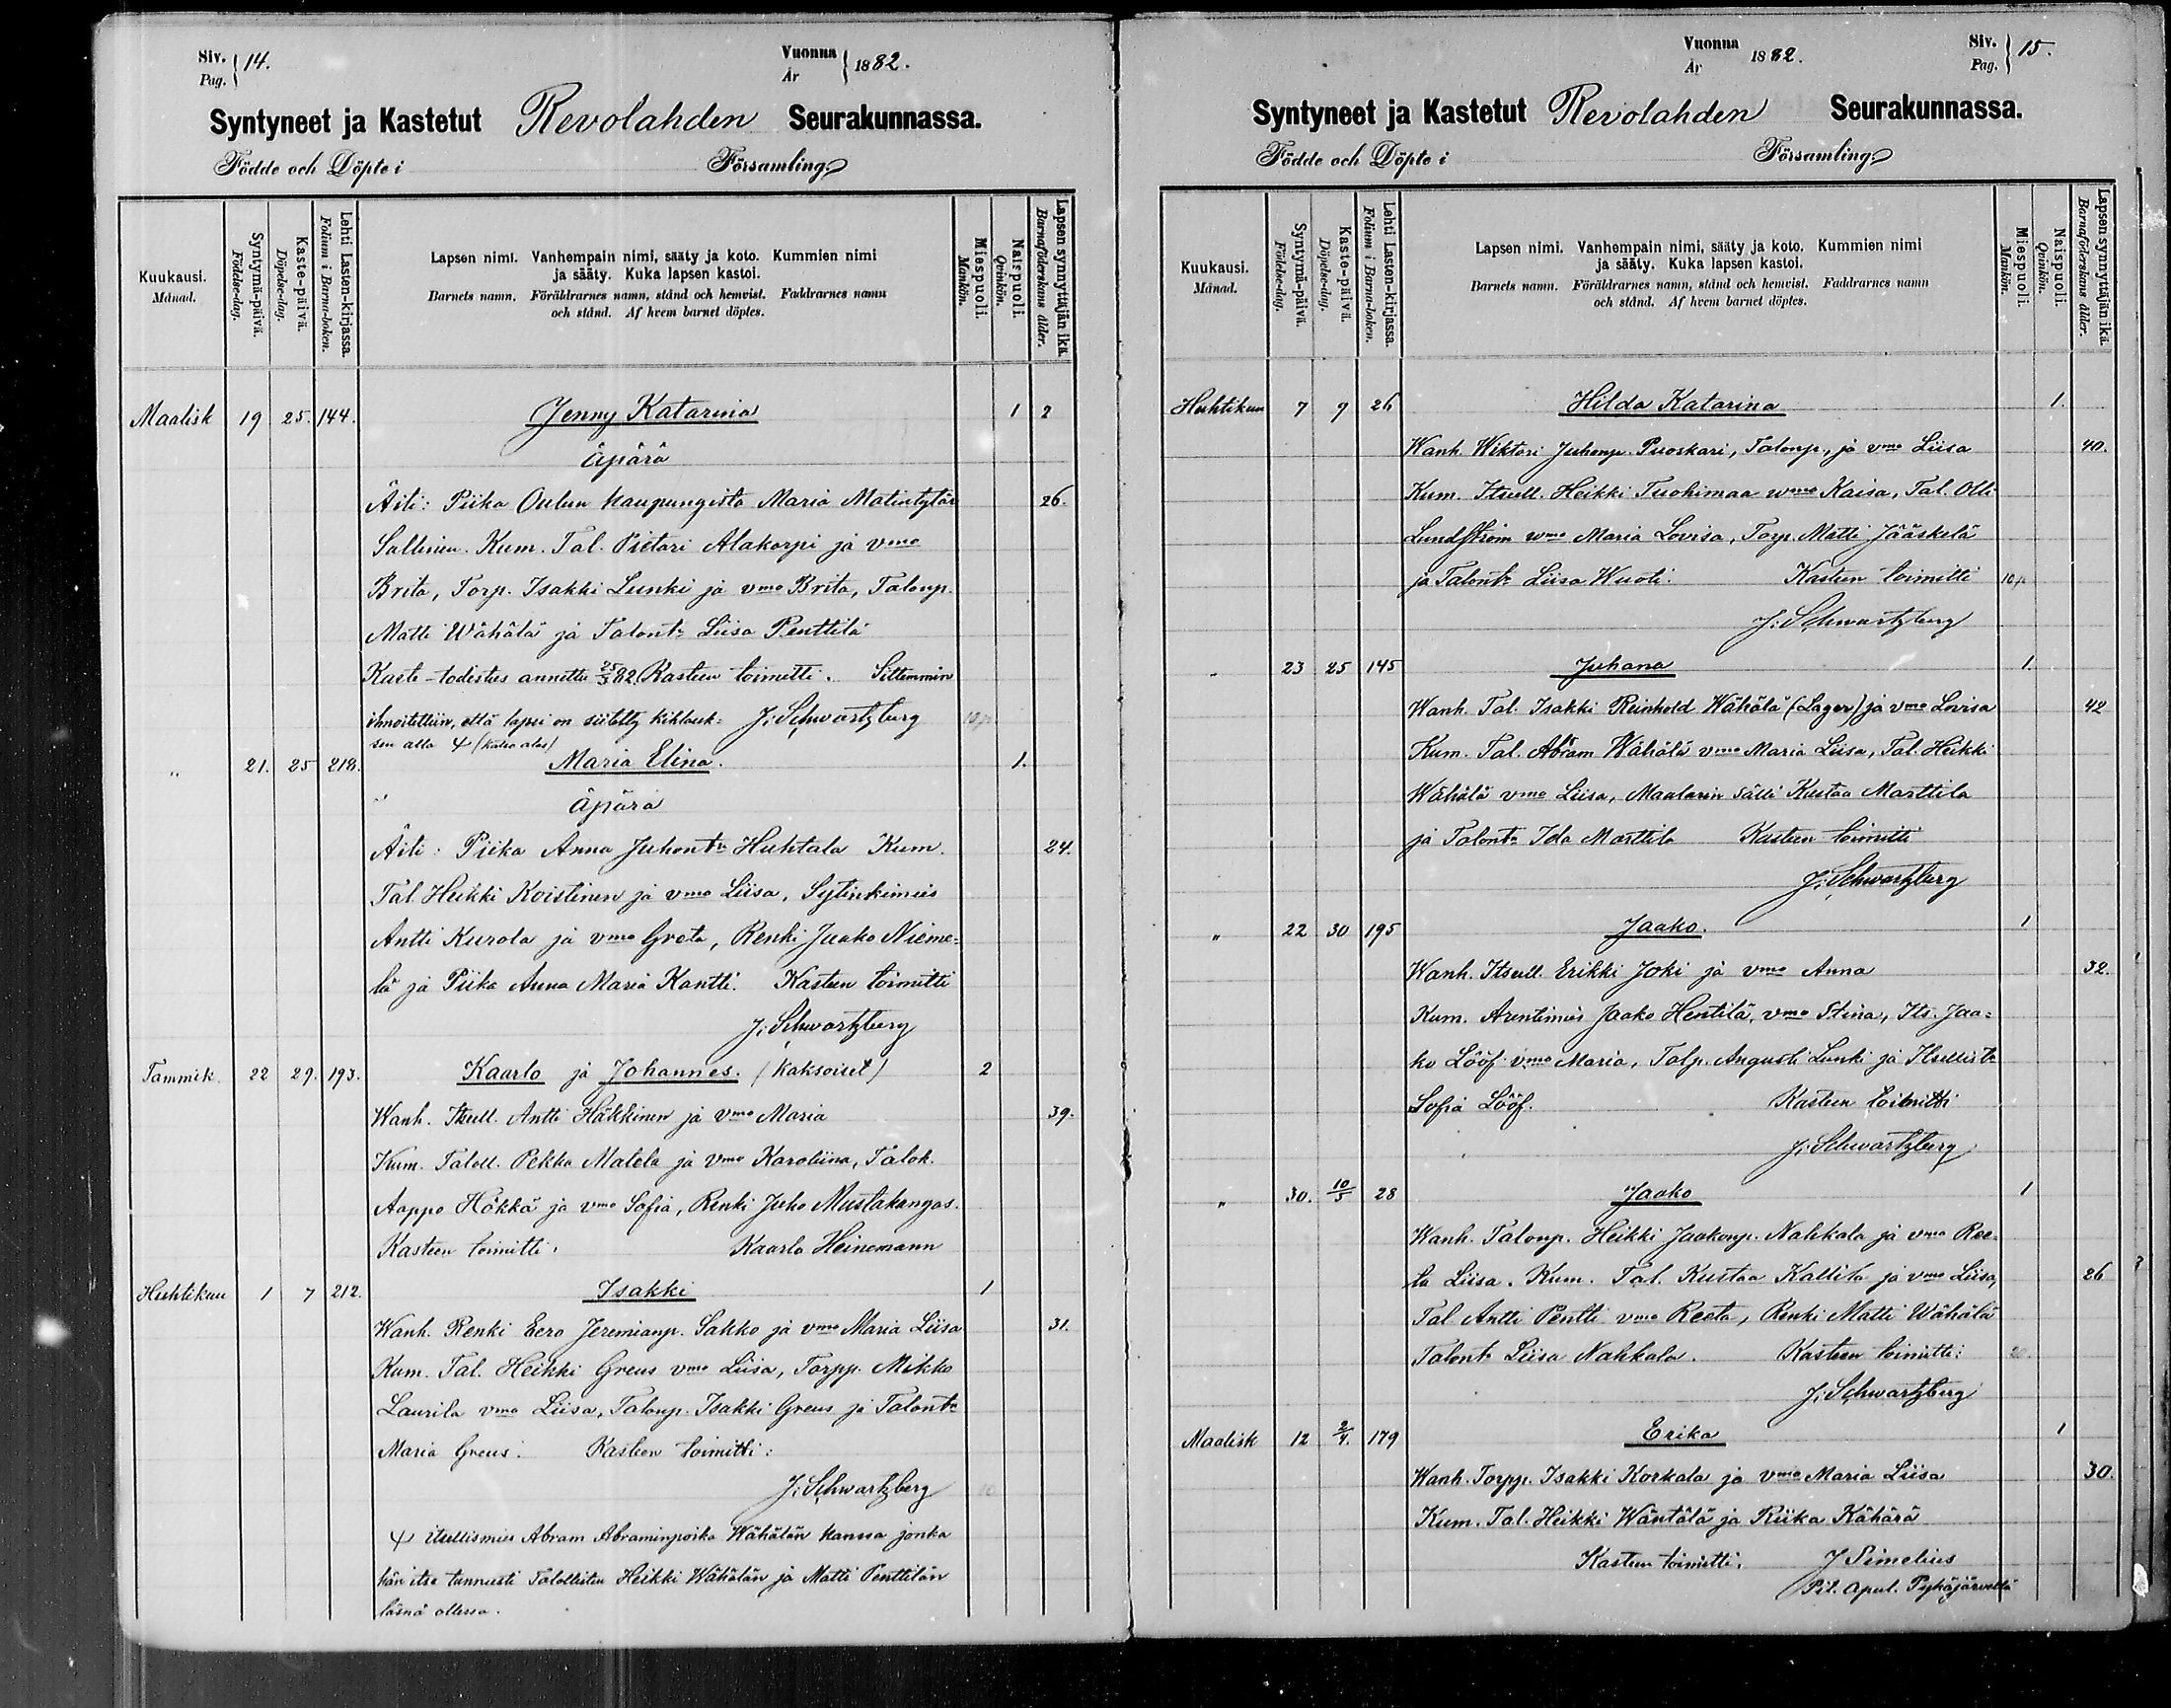 Siv. 14.
Pag.
Vuonna 1882.
År
Syntyneet ja Kastetut Revolahden Seurakunnassa.
Födde och Döpte i Församling
Kuukausi. Månad.
Syntymä-päivä. Födelse-dag.
Kaste-päivä. Döpelse-dag.
Lehti Lasten-kirjassa. Folium i Barna-boken.
Lapsen nimi. Vanhempain nimi, sääty ja koto. Kummien nimi
ja sääty. Kuka lapsen kastoi.
Barnets namn. Föräldrarnes namn, stånd och hemvist. Faddrarnes namn
och stånd. Af hvem barnet döptes.
Miespuoli. Mankön.
Naispuoli. Qvinkön.
Lapsen synnyttäjän ikä. Barnaföderskans ålder.
Maalisk 19 25. 144. Jenny Katarina 1 2
Äpärä
Äiti: Piika Oulun kaupungista Maria Matintytär 26.
Sallinen. Kum. Tal. Pietari Alakorpi ja vmo
Brita, Torp. Isakki Lunki ja vmo Brita, Talonp.
Matti Wähälä ja Talontr Liisa Penttilä
Kaste-todistus annettu 25/3 82. Kasteen toimitti. Sittemmin
ilmoitettiin, että lapsi on siitetty kihlauk= J. Schwartzberg 10 p
sen alla + (katso alas)
" 21. 25 218. Maria Elina. 1.
Äpärä
Äiti: Piika Anna Juhontr Huhtala Kum. 24.
Tal. Heikki Koistinen ja vmo Liisa, Sytinkimies
Antti Kurola ja vmo Greta, Renki Jaako Nieme=
lä ja Piika Anna Maria Kantti. Kasteen toimitti
J. Schwartzberg
Tammik. 22 29. 193. Kaarlo ja Johannes. (Kaksoiset) 2
Wanh. Itsell. Antti Häkkinen ja vmo Maria 39.
Kum. Talell. Pekka Malela ja vmo Karoliina, Talok.
Aappo Hökkä ja vmo Sofia, Renki Juho Mustakangas.
Kasteen toimitti. Kaarlo Heinemann
Huhtikuu 1 7 212. Isakki 1
Wanh. Renki Eero Jeremianp. Sakko ja vmo Maria Liisa 31.
Kum. Tal. Heikki Greus vmo Liisa, Torpp. Mikko
Laurila vmo Liisa, Talonp. Isakki Greus ja Talontr
Maria Greus. Kasteen toimitti:
J. Schwartzberg 10
+ itsellismies Abram Abraminpoika Wähälän kanssa jonka
hän itse tunnusti Talollisten Heikki Wähälän ja Matti Penttilän
läsnä ollessa.
Vuonna 1882.
År
Siv. 15.
Pag.
Syntyneet ja Kastetut Revolahden Seurakunnassa.
Födde och Döpte i Församling
Kuukausi. Månad.
Syntymä-päivä. Födelse-dag.
Kaste-päivä. Döpelse-dag.
Lehti Lasten-kirjassa. Folium i Barna-boken.
Lapsen nimi. Vanhempain nimi, sääty ja koto. Kummien nimi
ja sääty. Kuka lapsen kastoi.
Barnets namn. Föräldrarnes namn, stånd och hemvist. Faddrarnes namn
och stånd. Af hvem barnet döptes.
Miespuoli. Mankön.
Naispuoli. Qvinkön.
Lapsen synnyttäjän ikä. Barnaföderskans ålder.
Huhtikuu 7 9 26 Hilda Katarina 1.
Wanh. Wiktori Juhonp. Puoskari, Talonp., ja vmo Liisa 40.
Kum. Itsell. Heikki Tuohimaa wmo Kaisa, Tal. Olli
Lundström wmo Maria Lovisa, Torp. Matti Jääskelä
ja Talontr Liisa Wuoti. Kasteen toimitti 10 p
J. Schwartzberg
" 23 25 145 Juhana 1.
Wanh. Tal. Isakki Reinhold Wähälä (Lager) ja vmo Lovisa 42
Kum. Tal. Abram Wähälä vmo Maria Liisa, Tal. Heikki
Wähälä vmo Liisa, Maalarin sälli Kustaa Marttila
ja Talontr Ida Marttila Kasteen toimitti
J. Schwartzberg
" 22 30 195 Jaako. 1
Wanh. Itsell. Erikki Joki ja vmo Anna 32.
Kum. Arentimies Jaako Hentilä, vmo Stina, Its. Jaa=
ko Lööf vmo Maria, Talp. Augusti Lunki ja Itsellistr
Sofia Lööf. Kasteen toimitti
J. Schwartzberg
" 30. 10/5 28 Jaako 1
Wanh. Talonp. Heikki Jaakonp. Nahkala ja vmo Ree=
ta Liisa. Kum. Tal. Kustaa Kallila ja vmo Liisa, 26
Tal Antti Pentti vmo Reeta, Renki Matti Wähälä
Talontr Liisa Nahkala. Kasteen toimitti: 20.
J. Schwartzberg
Maalisk 12 2/4. 179 Erika 1
Wanh. Torpp. Isakki Korkala ja vmo Maria Liisa 30.
Kum. Tal. Heikki Wäntälä ja Riika Kähärä
Kasteen toimitti. J Simelius
Pit. Apul. Pyhäjärveltä